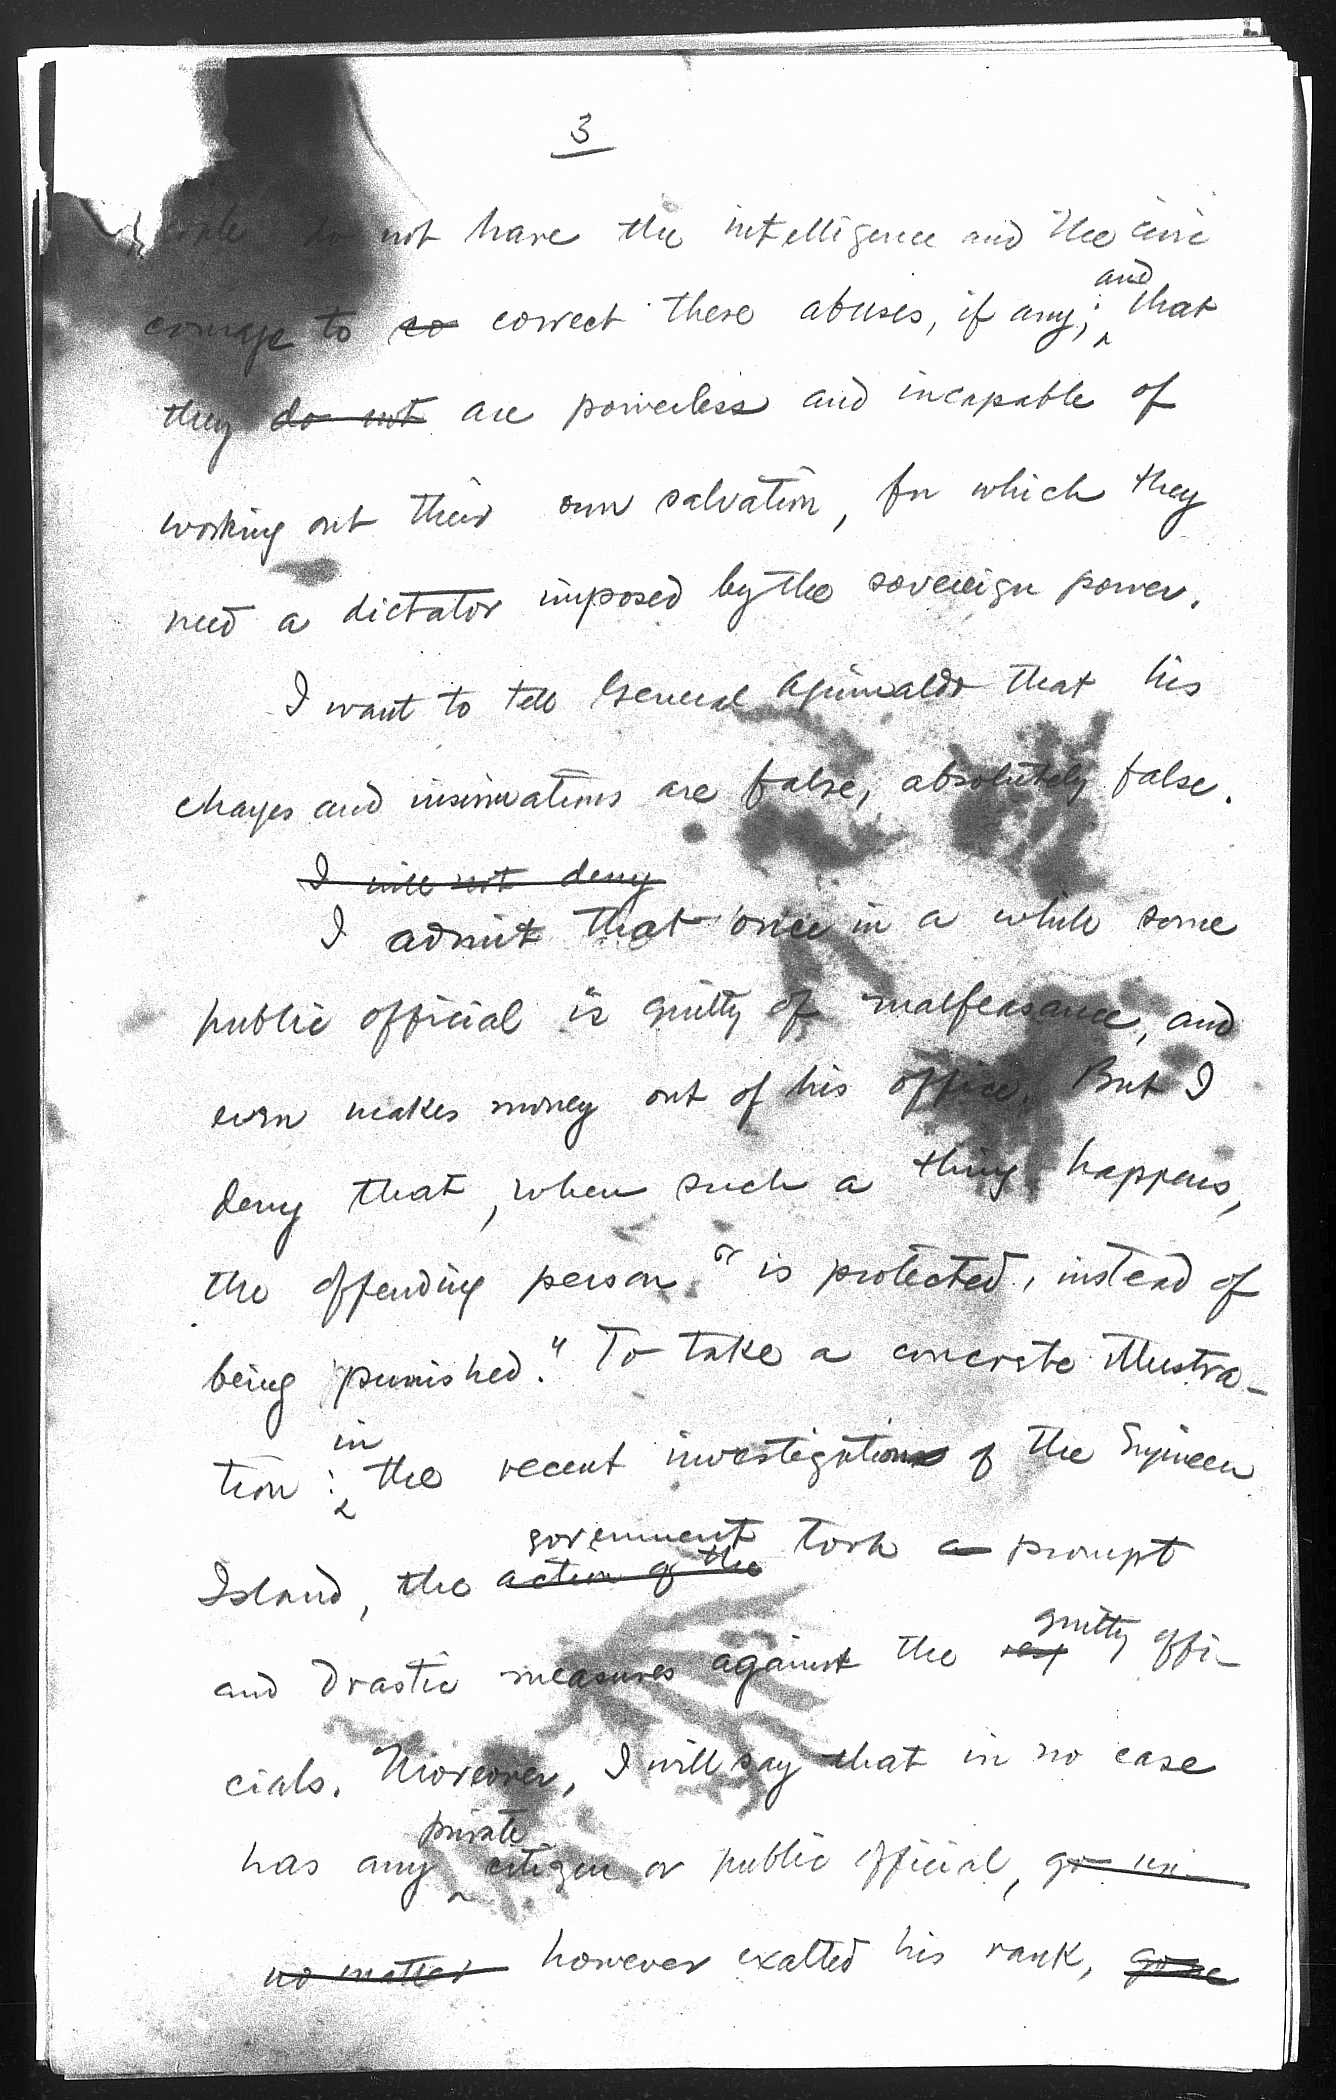 3
people do not have the intelligence and the civic
and
courage to so correct these abuses, if any; that
they do not are powerless and incapable of
working out their own salvation, for which they
need a dictator imposed by the sovereign power.
I want to tell General Aguinaldo that his
charges and insinuations are false, absolutely false.
I will not deny
I admit that once in a while some
public official is guilty of malfeasance, and
even makes money out of his office. But I
deny that, when such a thing happens,
the offending person "is protected, instead of
being punished." To take a concrete illustra-
in
tion: the recent investigations of the Engineer
government
Island, the action of the took a prompt
guilty
and drastic measures against the offi-
cials. Moreover, I will say that in no case
private
has any citizen or public official, go un-
no matter however exalted his rank, gone